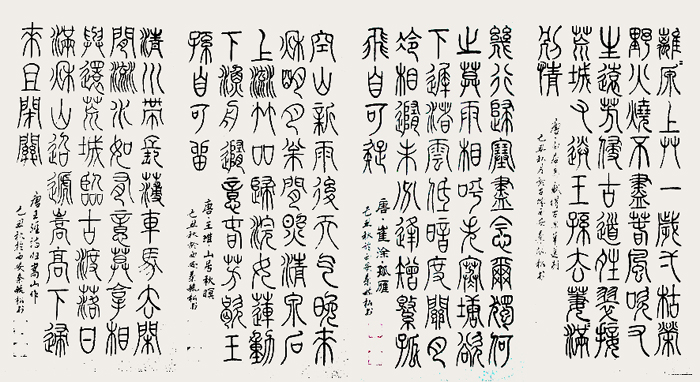 離離原上艸一歲一枯榮
野火燒不盡春風吹又
生遠芳侵古道晴翠接
荒城又送王孫去萋萋滿
別情
唐·白居易賦得古原草送別
己丑秋月於西安
幾行歸塞盡念爾獨何
之莫雨相呼失寒塘欲
下遲渚雲低暗度關月
冷相隨未必逢矰繳孤
飛自可疑
唐·崔塗·孤雁
己丑秋於西安
空山新雨後天气晚來
秋明月松間照清泉石
上流竹喧歸浣女蓮動
下漁舟隨意春芳歇王
孫自可留
唐·王維·山居秋暝
己丑秋於西安
清川帶長薄車馬去閑
閑流水如有意莫禽相
與還荒城臨古渡落日
滿秋山迢遞嵩高下歸
來且閉關
唐王維詩归嵩山作
己丑秋於西安